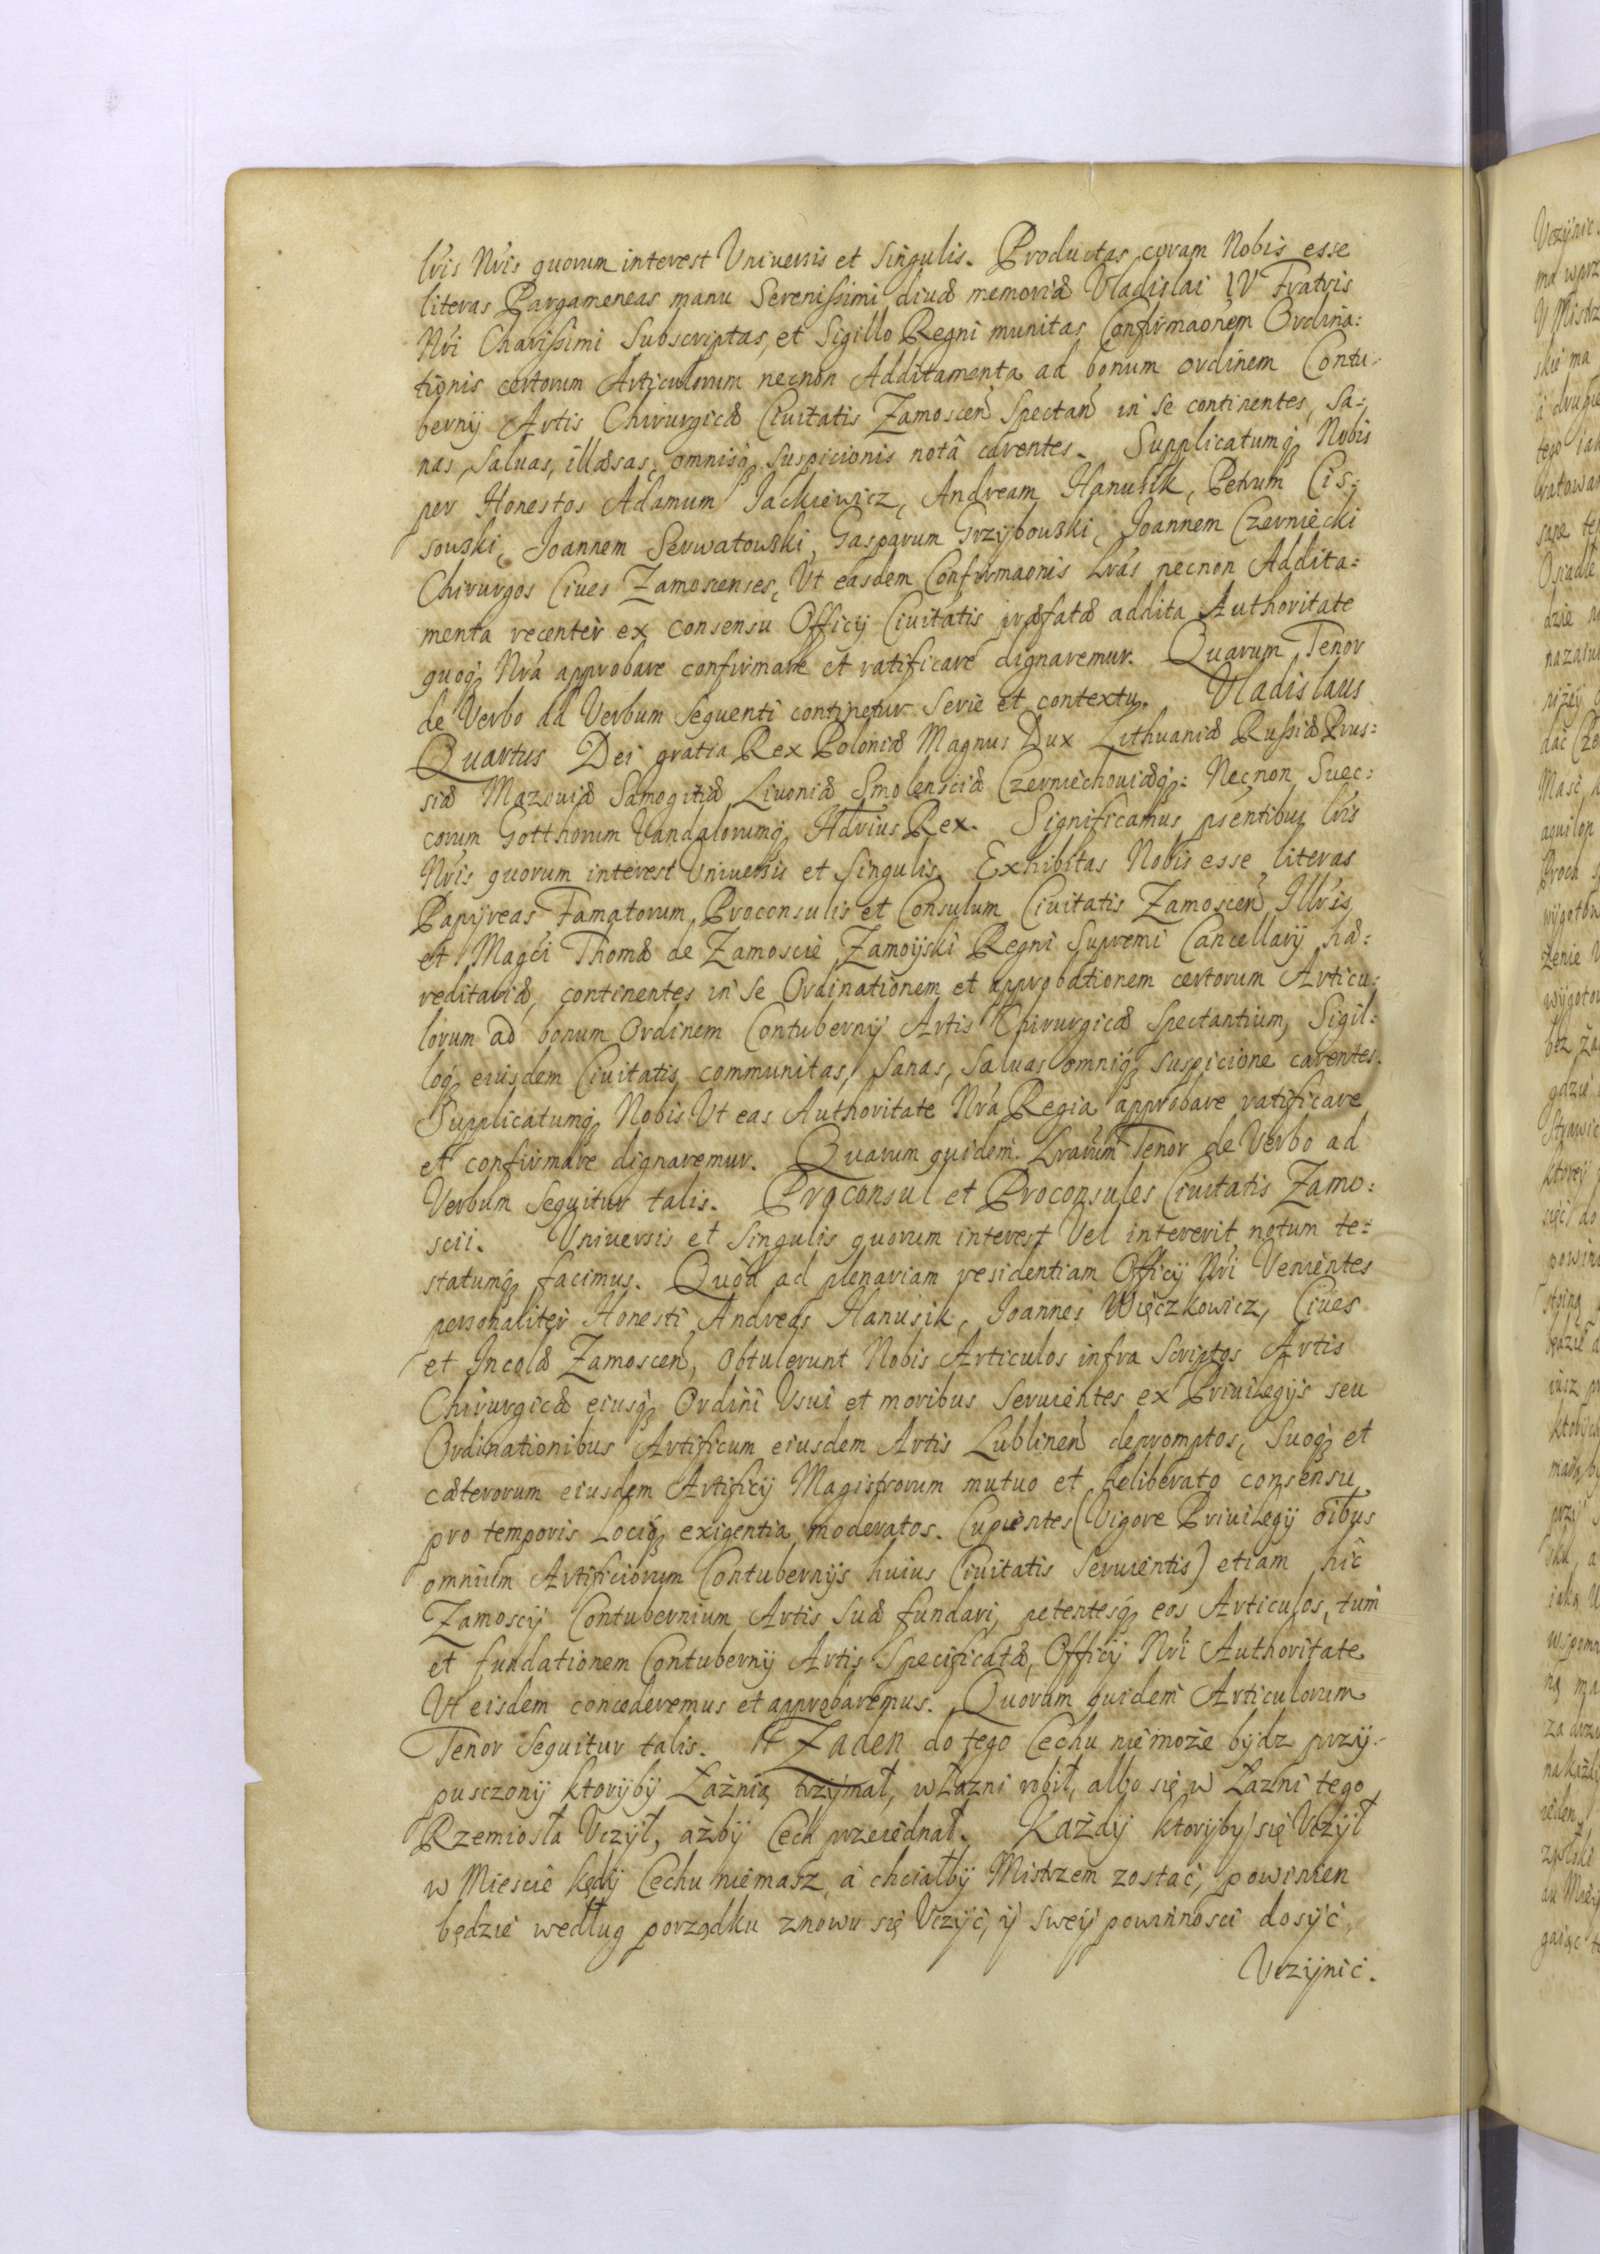 lris Nris quorum interest Universis et singulis. Productas coram Nobis esse
literas Pargameneas manu Serenissimi diuæ memoriæ Vladislai IV Fratris
Nri Charissimi Subscriptas, et Sigillo Regni munitas Confirmaonem Ordina:
tionis certorum Articulorum necnon Additamenta ad bonum ordinem Contu-
bernij Artis Chirurgicæ Ciuitatis Zamoscen Spectan in se continentes, Sa:
nas, Saluas, illæsas, omnisq suspicionis notâ carentes. Supplicatumq Nobis
per Honestos Adamum Jackiewicz, Andream Hanusik, Petrum Cis:
sowski, Joannem Serwatowski, Gasparum Grzybowski, Joannem Czerniecki
Chirurgos Ciues Zamoscenses, Ut easdem Confirmaonis Lras necnon Addita:
menta recenter ex consensu Officij Ciuitatis præfatæ addita Authoritate
quoq Nra approbare confirmare et ratificare dignaremur. Quarum Tenor
de Verbo ad Verbum sequenti continetur Serie et contextu. Vladislaus
Quartus Dei gratia Rex Poloniæ Magnus Dux Lithuaniæ Russiæ Prus:
siæ Mazouiæ Samogitiæ Liuoniæ Smolensciæ Czerniechouiæq: Necnon Suec:
corum Gotthorum Vandalorumq Hdrius Rex. Significamus psentibus lris
Nris quorum interest Vniuersis et singulis. Exhibitas Nobis esse literas
Papyreas Famatorum Proconsulis et Consulum Ciuitatis Zamoscen, Illris
et Magci Thomæ de Zamoscie Zamoyski Regni Supremi Cancellarij hæ:
reditariæ, continentes in se Ordinationem et approbationem certorum Articu:
lorum ad bonum Ordinem Contubernij Artis Chirurgicæ Spectantium, Sigil:
loq eiusdem Ciuitatis communitas, Sanas, Saluas omniq suspicione carentes.
Supplicatumq Nobis Vt eas Authoritate Nra Regia approbare ratificare
et confirmare dignaremur. Quarum quidem Lrarum Tenor de Verbo ad
Verbum Sequitur talis. Proconsul et Proconsules Ciuitatis Zamo:
scii. Vniuersis et Singulis quorum interest Vel intererit notum te:
statumq facimus. Quòd ad plenariam residentiam Officij Nri Venientes
personaliter Honesti Andreas Hanusik, Joannes Więczkowicz, Ciues
et Incolæ Zamoscen, obtulerunt Nobis Articulos infra Scriptos Artis
Chirurgicæ eiusq Ordini Vsui et moribus Seruientes ex Priuilegijs seu
Ordinationibus Artificum eiusdem Artis Lublinen depromptos, Suoq et
cæterorum eiusdem Artificij Magistrorum mutuo et deliberato consensu
pro temporis Lociq exigentia moderatos. Cupientes (Vigore Priuilegij oibus
omnium Artificiorum Contubernijs huius Ciuitatis Seruientis) etiam hic
Zamoscij Contubernium Artis Suæ fundari, petentesq eos Articulos, tum
et fundationem Contubernij Artis Specificatæ, Officij Nri Authoritate
Vt eisdem concederemus et approbaremus. Quorum quidem Articulorum
Tenor Sequitur talis. Żaden do tego Cechu nie może bydz przy-
pusczony ktoryby Łaźnią trzymał, w Łazni robił, albo się w Łazni tego
Rzemiosła Vczył, ażby Cech przeiednał. Każdy ktoryby się Vczył
w Miescie kędy Cechu niemasz, a chciałby Mistrzem zostać, powinien
będzie według porządku znowu się Vczyć, y swey powinnosci dosyć
Vczynić.